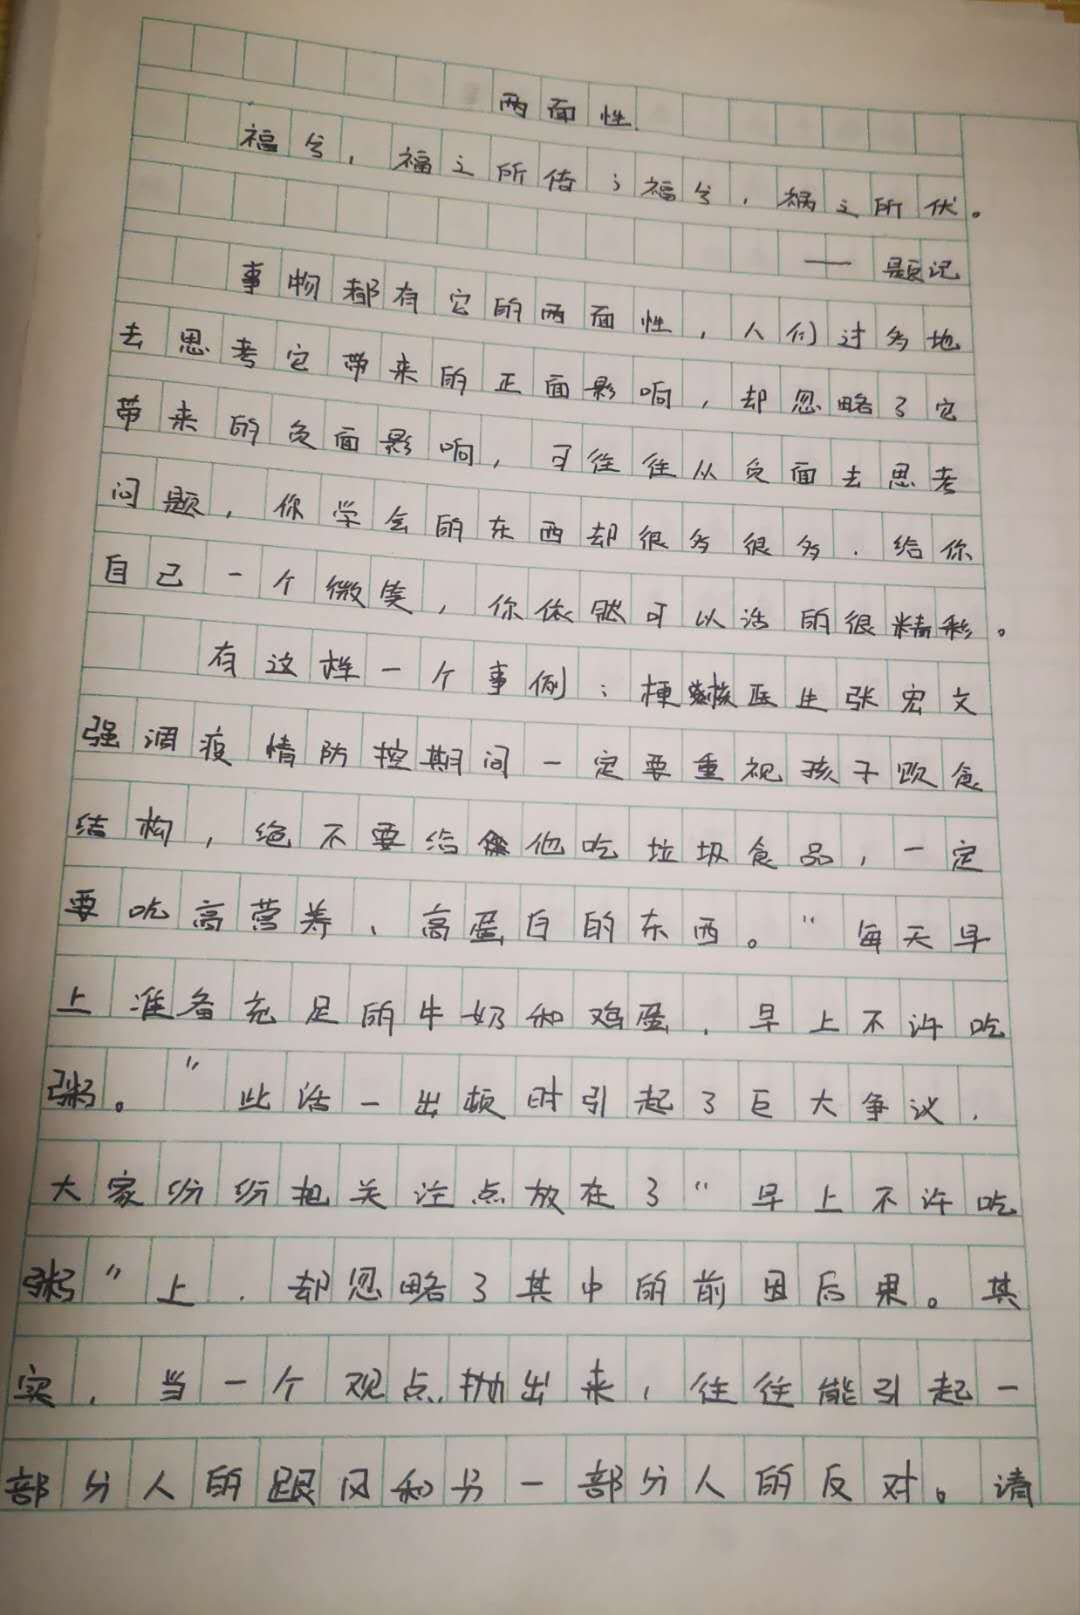 两面性
福兮，福之所倚；福兮，祸之所伏。
——题记
事物都有它的两面性，人们过多地
去思考它带来的正面影响，却忽略了它
带来的负面影响，可往往从负面去思考
问题，你学会的东西却很多很多．给你
自己一个微笑，你依然可以活的很精彩。
有这样一个事例：梗核医生张宏文
强调疫情防控期间一定要重视孩子饮食
结构，绝不要给他吃垃圾食品，一定
要吃高营养、高蛋白的东西。“每天早
上准备充足的牛奶和鸡蛋，早上不许吃
粥。”此话一出顿时引起了巨大争议，
大家纷纷把关注点放在了“早上不许吃
粥”上，却忽略了其中的前因后果。其
实，当一个观点抛出来，往往能引起一
部分人的跟风和另一部分人的反对。请